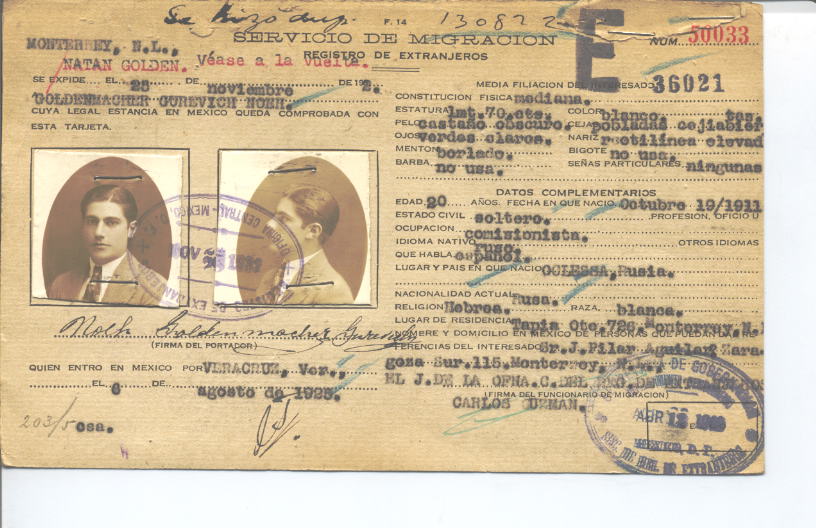 Se hizo dup. F. 14 130822
SERVICIO DE MIGRACION
REGISTRO DE EXTRANJEROS
E
NUM. 50033
36021
MONTERREY, N.L.,
NATAN GOLDEN. Véase a la vuelta.
SE EXPIDE EL 23 DE noviembre DE 19 2.
GOLDENMACHER GUREVICH NOEH.
CUYA LEGAL ESTANCIA EN MEXICO QUEDA COMPROBADA CON
ESTA TARJETA.
(FIRMA DEL PORTADOR)
QUIEN ENTRO EN MEXICO POR VERACRUZ, Ver.,
EL 6 DE agosto de 1925.
203/5 osa.
MEDIA FILIACION DEL INTERESADO
CONSTITUCION FISICA mediana.
ESTATURA 1mt.70.cts. COLOR blanco.
PELO castaño obscuro. CEJAS pobladas cejiabier
OJOS verdes claros. NARIZ rectilínea elevad
MENTON borlado. BIGOTE no usa.
BARBA no usa. SEÑAS PARTICULARES ningunas
DATOS COMPLEMENTARIOS
EDAD 20 AÑOS. FECHA EN QUE NACIO Octubre 19/1911
ESTADO CIVIL soltero. PROFESION, OFICIO U
OCUPACION comisionista.
IDIOMA NATIVO ruso. OTROS IDIOMAS
QUE HABLA español.
LUGAR Y PAIS EN QUE NACIO OCLESSA, Rusia.
NACIONALIDAD ACTUAL Rusa.
RELIGION Hebrea. RAZA blanca.
LUGAR DE RESIDENCIA Tapia Ote.726, Monterrey, N.L
NOMBRE Y DOMICILIO EN MEXICO DE PERSONAS QUE PUEDAN DAR RE
FERENCIAS DEL INTERESADO Sr. J. Pilar Aguilar Zara-
goza Sur. 115, Monterrey, N.L.
EL J. DE LA OFNA. C. DEL REG. DE EXTRANJEROS
(FIRMA DEL FUNCIONARIO DE MIGRACION)
CARLOS GUZMAN.
Noeh Goldenmacher Gurevich
OFICINA CENTRAL, MEXICO, D.F.
ABR 12